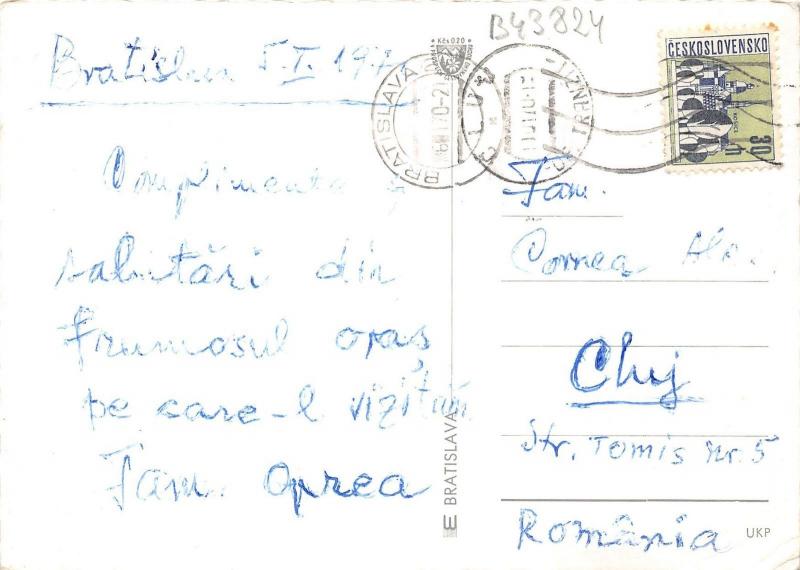 B43824
Bratislava 5.I.197
Complimente și
salutări din
frumosul oraș
pe care-l vizităm
Fam. Oprea
E BRATISLAVA
Kčs 0,20
BRATISLAVA
CLUJ
ČESKOSLOVENSKO
30 h
Fam.
Cornea Al.
Cluj
Str. Tomis nr. 5
România
UKP